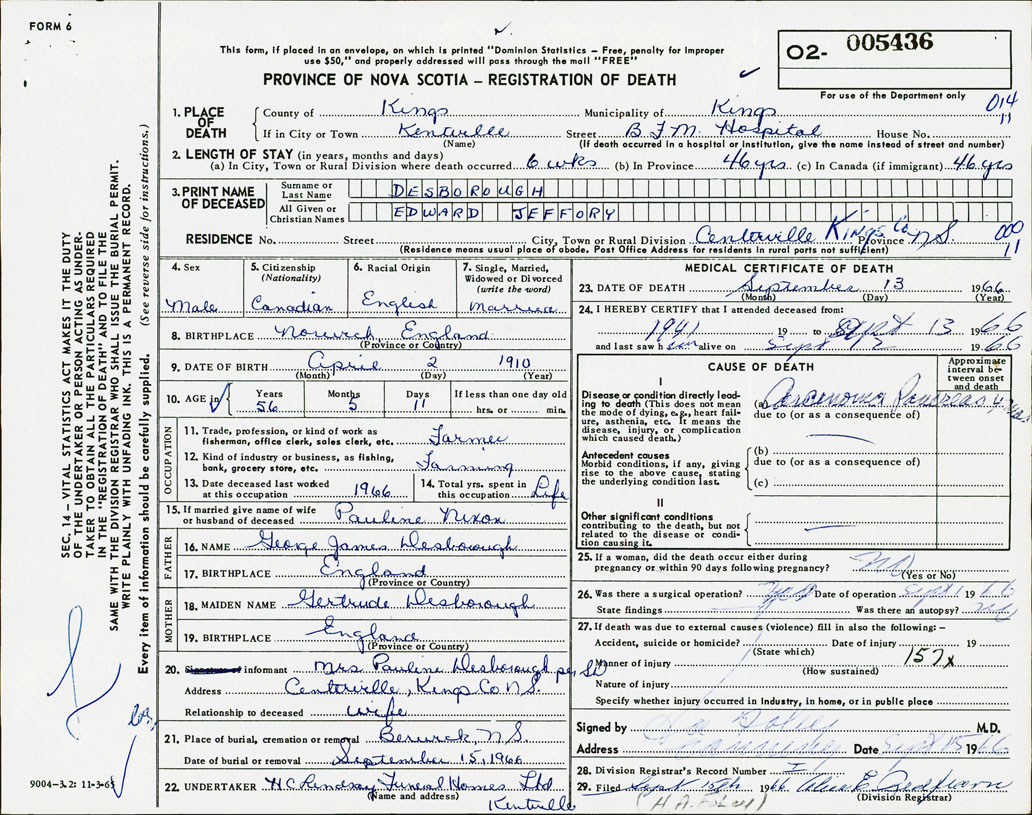 FORM 6
This form, if placed in an envelope, on which is printed "Dominion Statistics – Free, penalty for improper
use $50," and properly addressed will pass through the mail "FREE"
O2- 005436
PROVINCE OF NOVA SCOTIA – REGISTRATION OF DEATH
For use of the Department only
014
11
1. PLACE OF DEATH
County of Kings Municipality of Kings
If in City or Town Kentville Street B.F.M. Hospital House No.
(Name) (If death occurred in a hospital or institution, give the name instead of street and number)
2. LENGTH OF STAY (in years, months and days)
(a) In City, Town or Rural Division where death occurred 6 wks (b) In Province 46 yrs. (c) In Canada (if immigrant) 46 yrs
3. PRINT NAME OF DECEASED
Surname or Last Name DESBOROUGH
All Given or Christian Names EDWARD JEFFORY
RESIDENCE No. Street City, Town or Rural Division Centreville Kings Co Province N.S.
(Residence means usual place of abode. Post Office Address for residents in rural parts not sufficient)
000
11
4. Sex Male
5. Citizenship (Nationality) Canadian
6. Racial Origin English
7. Single, Married, Widowed or Divorced (write the word) Married
8. BIRTHPLACE Norwich England
(Province or Country)
9. DATE OF BIRTH April 2 1910
(Month) (Day) (Year)
10. AGE in Years 56 Months 5 Days 11 If less than one day old
hrs. or min.
OCCUPATION
11. Trade, profession, or kind of work as fisherman, office clerk, sales clerk, etc. Farmer
12. Kind of industry or business, as fishing, bank, grocery store, etc. Farming
13. Date deceased last worked at this occupation 1966
14. Total yrs. spent in this occupation Life
15. If married give name of wife or husband of deceased Pauline Nixon
FATHER
16. NAME George James Desborough
17. BIRTHPLACE England
(Province or Country)
MOTHER
18. MAIDEN NAME Gertrude Desborough
19. BIRTHPLACE England
(Province or Country)
20. informant Mrs. Pauline Desborough per
Address Centreville, Kings Co. N.S.
Relationship to deceased wife
21. Place of burial, cremation or removal Berwick, N.S.
Date of burial or removal September 15, 1966
22. UNDERTAKER H C Lindsay Funeral Homes Ltd
(Name and address) Kentville
MEDICAL CERTIFICATE OF DEATH
23. DATE OF DEATH September 13 1966
(Month) (Day) (Year)
24. I HEREBY CERTIFY that I attended deceased from:
1941 19 to Sept 13 1966
and last saw him alive on Sept 12 1966
CAUSE OF DEATH
Approximate interval between onset and death
I
Disease or condition directly leading to death (This does not mean the mode of dying, e.g., heart failure, asthenia, etc. It means the disease, injury, or complication which caused death.)
(a) Carcinoma Pancreas 4
due to (or as a consequence of)
Antecedent causes
Morbid conditions, if any, giving rise to the above cause, stating the underlying condition last.
(b)
due to (or as a consequence of)
(c)
II
Other significant conditions
contributing to the death, but not related to the disease or condition causing it.
25. If a woman, did the death occur either during pregnancy or within 90 days following pregnancy? No
(Yes or No)
26. Was there a surgical operation? Yes Date of operation Sept 1 1966
State findings Was there an autopsy? No
27. If death was due to external causes (violence) fill in also the following: –
Accident, suicide or homicide? Date of injury 19
(State which)
Manner of injury 157x
(How sustained)
Nature of injury
Specify whether injury occurred in Industry, in home, or in public place
Signed by M.D.
Address Date Sept 15 1966
28. Division Registrar's Record Number
29. Filed Sept 15th 1966
(Division Registrar)
SEC. 14 – VITAL STATISTICS ACT MAKES IT THE DUTY
OF THE UNDERTAKER OR PERSON ACTING AS UNDER-
TAKER TO OBTAIN ALL THE PARTICULARS REQUIRED
IN THE "REGISTRATION OF DEATH" AND TO FILE THE
SAME WITH THE DIVISION REGISTRAR WHO SHALL ISSUE THE BURIAL PERMIT.
WRITE PLAINLY WITH UNFADING INK. THIS IS A PERMANENT RECORD.
Every item of information should be carefully supplied. (See reverse side for instructions.)
9004–3.2: 11-3-65